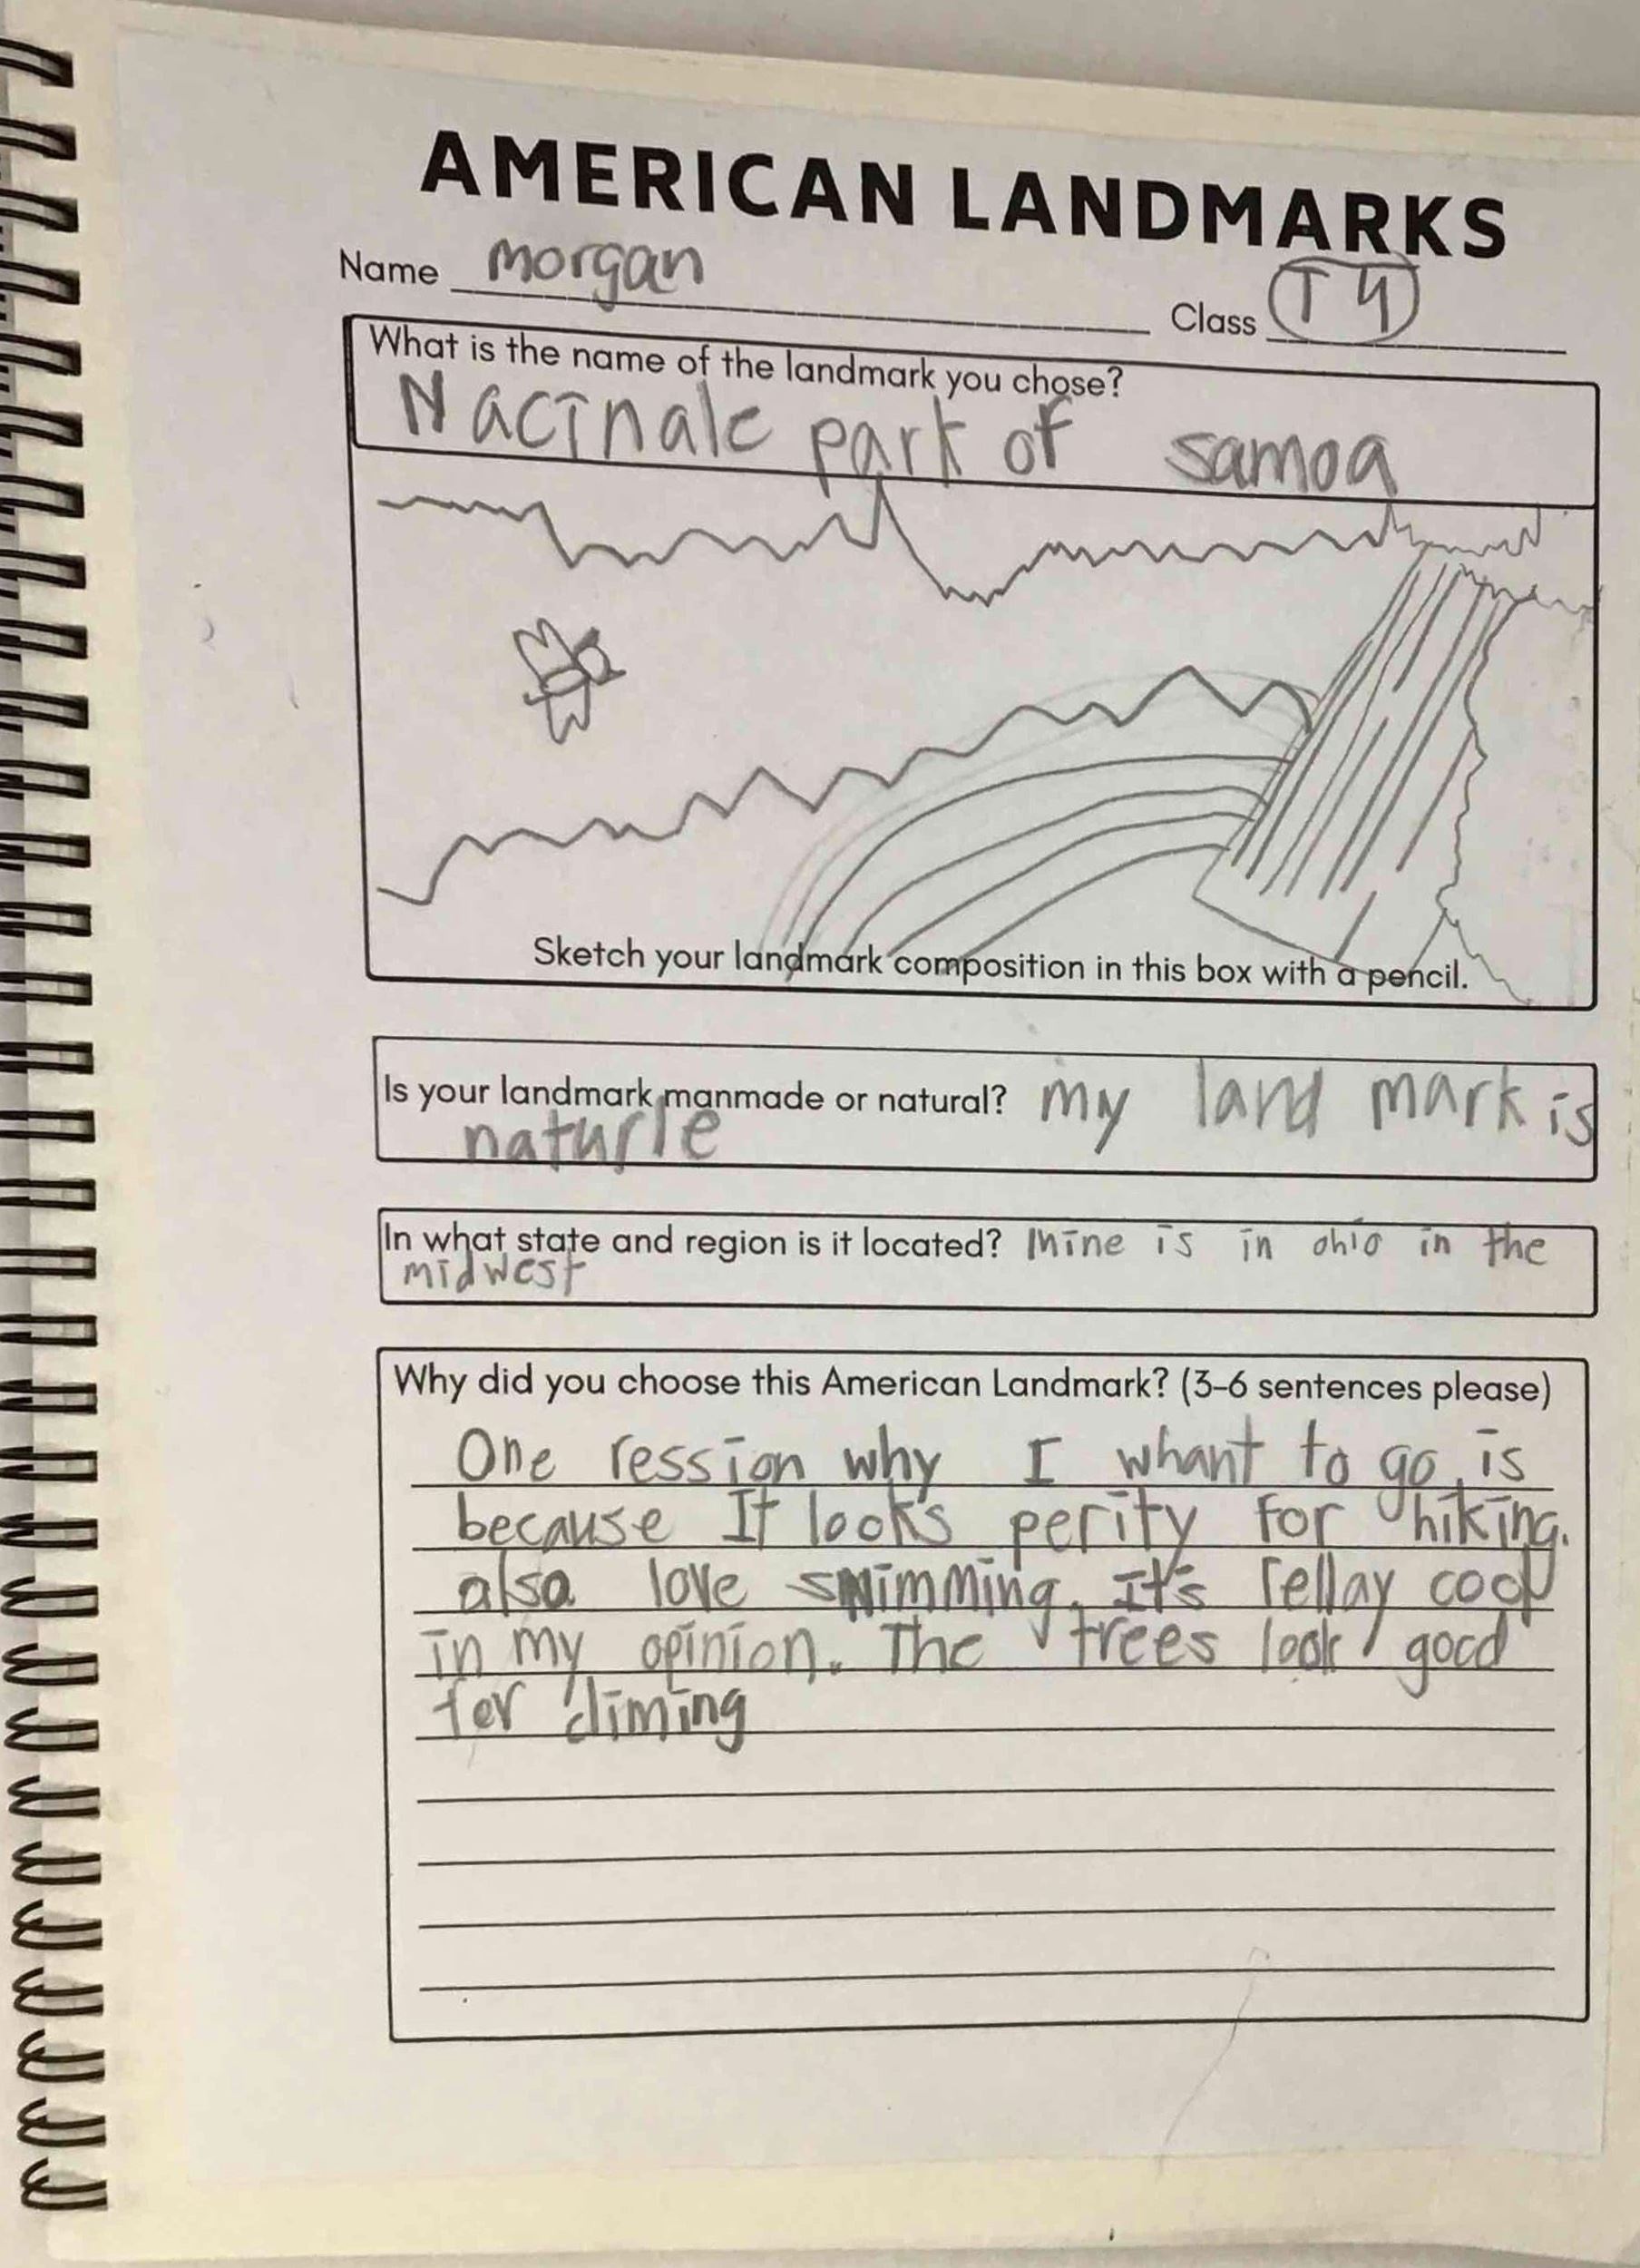 AMERICAN LANDMARKS
Name morgan Class T4
What is the name of the landmark you chose?
Nacinale park of samoa
Sketch your landmark composition in this box with a pencil.
Is your landmark manmade or natural? my land mark is
naturle
In what state and region is it located? mine is in ohio in the
midwest
Why did you choose this American Landmark? (3-6 sentences please)
One ression why I whant to go is
because It looks perity for hiking.
also love swimming. It's rellay cool
in my opinion. The trees look good
for climing